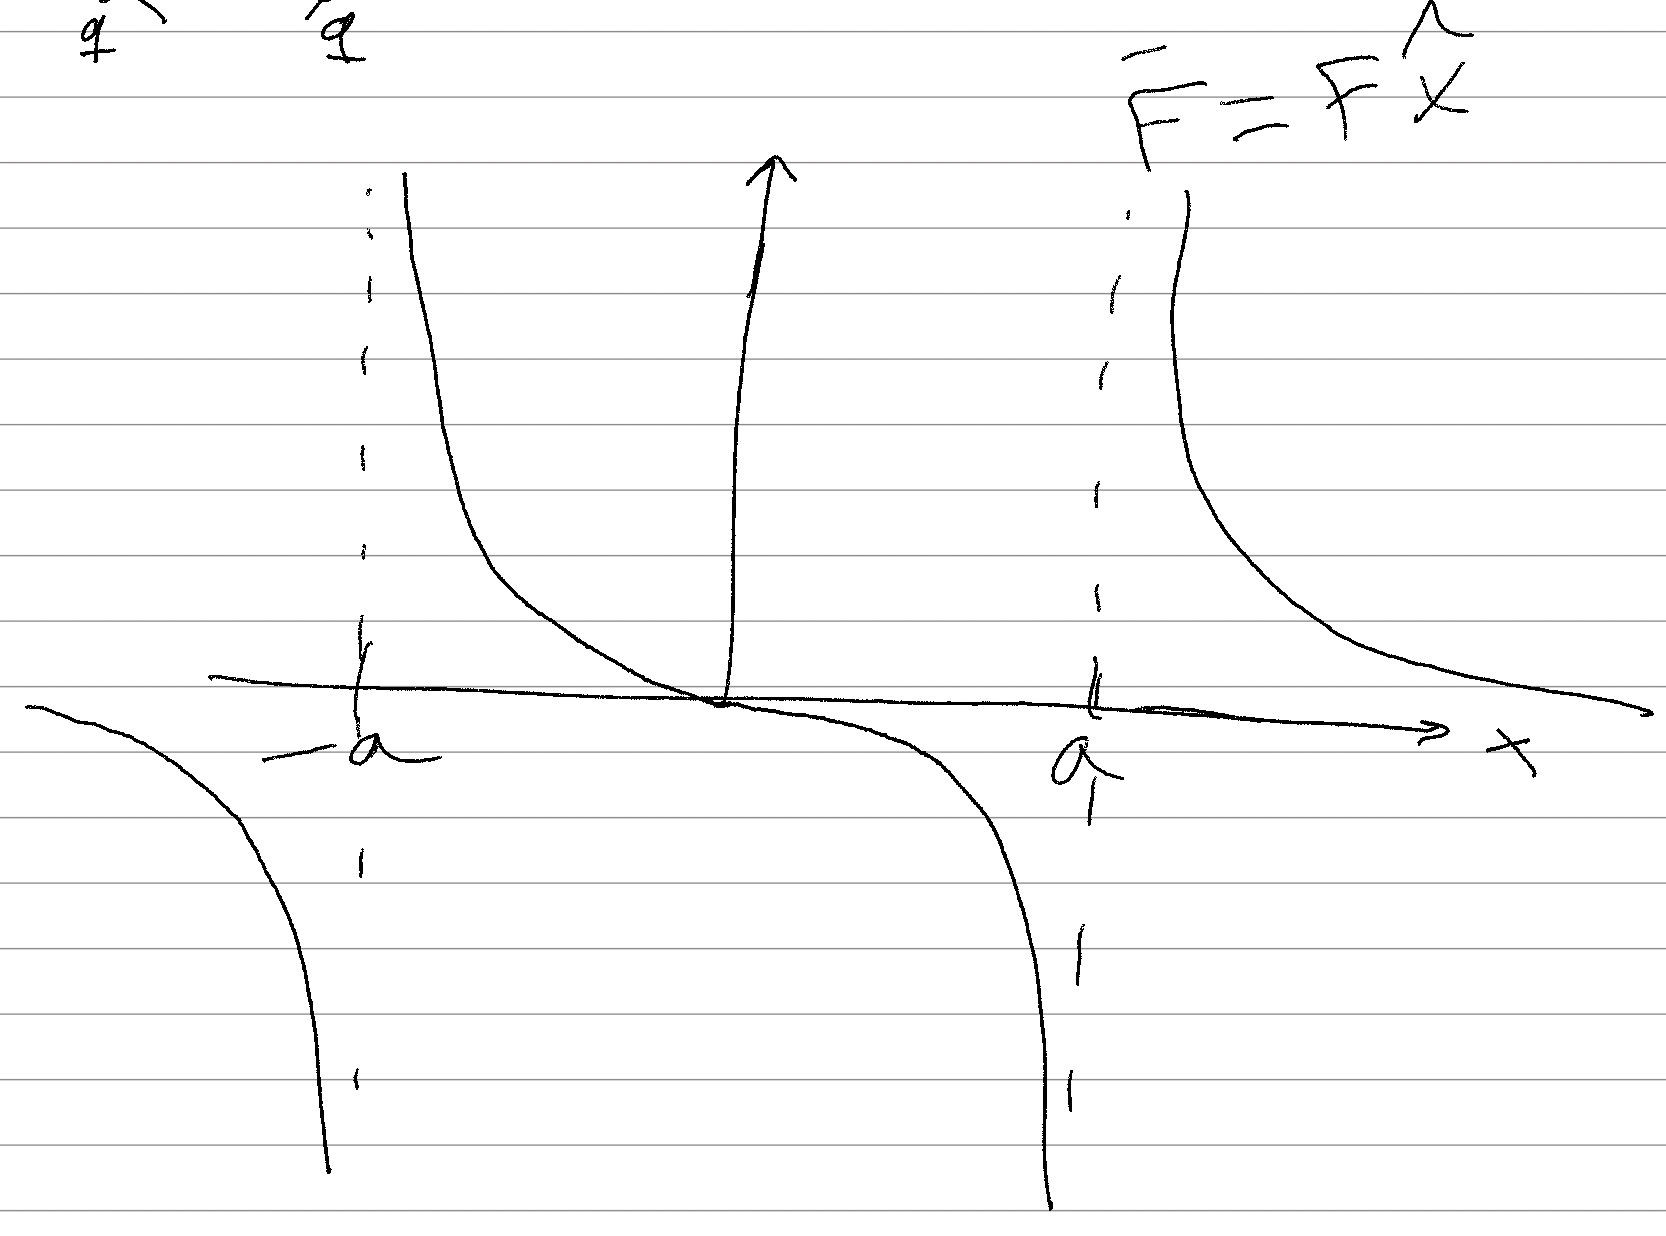 q q
F̄ = F x̂
-a a x